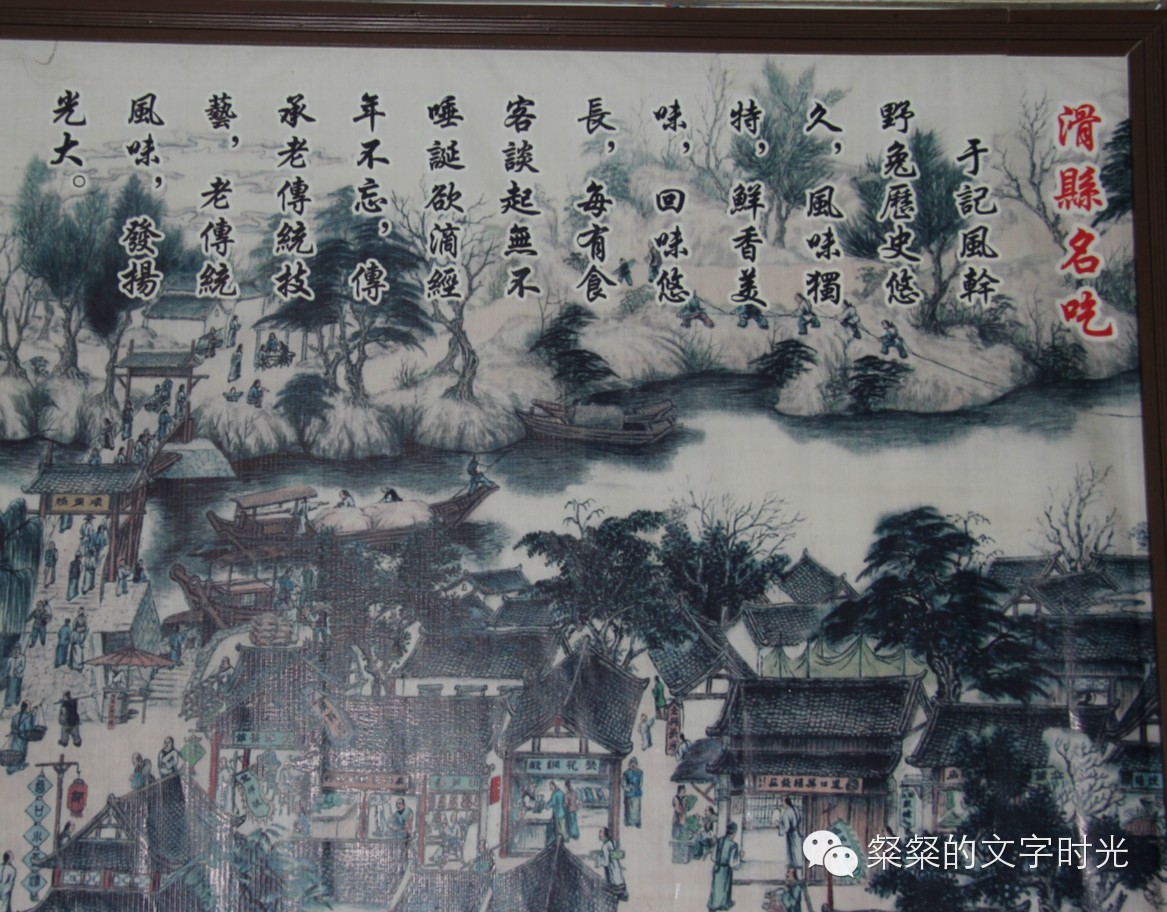 滑縣名吃
于記風幹
野兔歷史悠
久，風味獨
特，鮮香美
味，回味悠
長，每有食
客談起無不
唾誕欲滴經
年不忘，傳
承老傳統技
藝，老傳統
風味，發揚
光大。
粲粲的文字时光